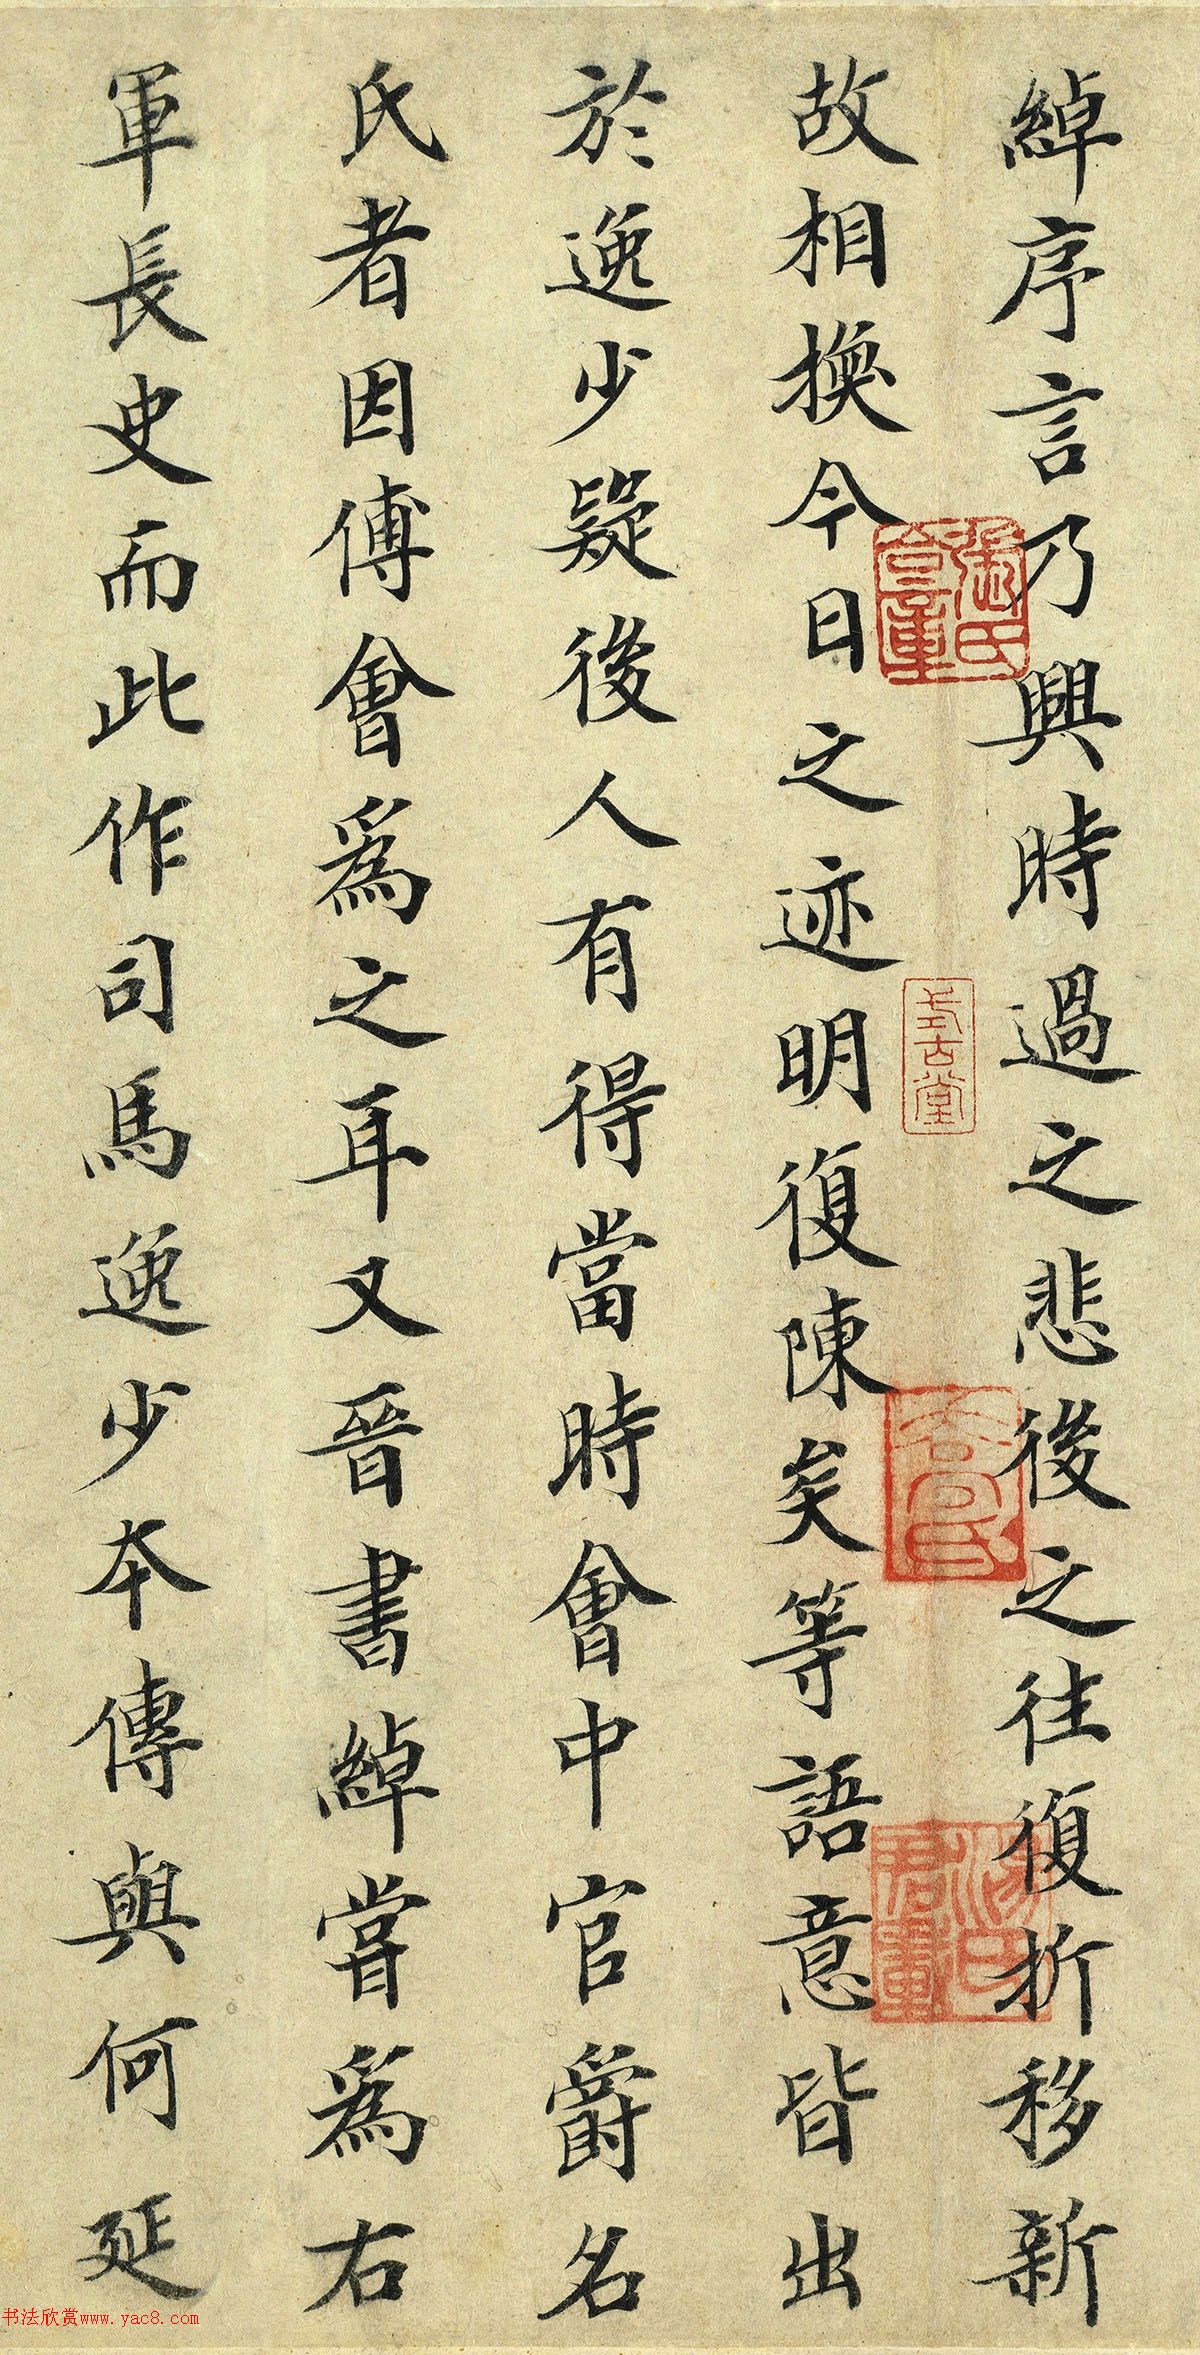 綽序言乃興時過之悲後之往復折移新
故相換今日之迹明復陳矣等語意皆出
於逸少疑後人有得當時會中官爵名
氏者因傅會為之耳又晉書綽嘗為右
軍長史而此作司馬逸少本傳與何延
式古堂
书法欣赏www.yac8.com